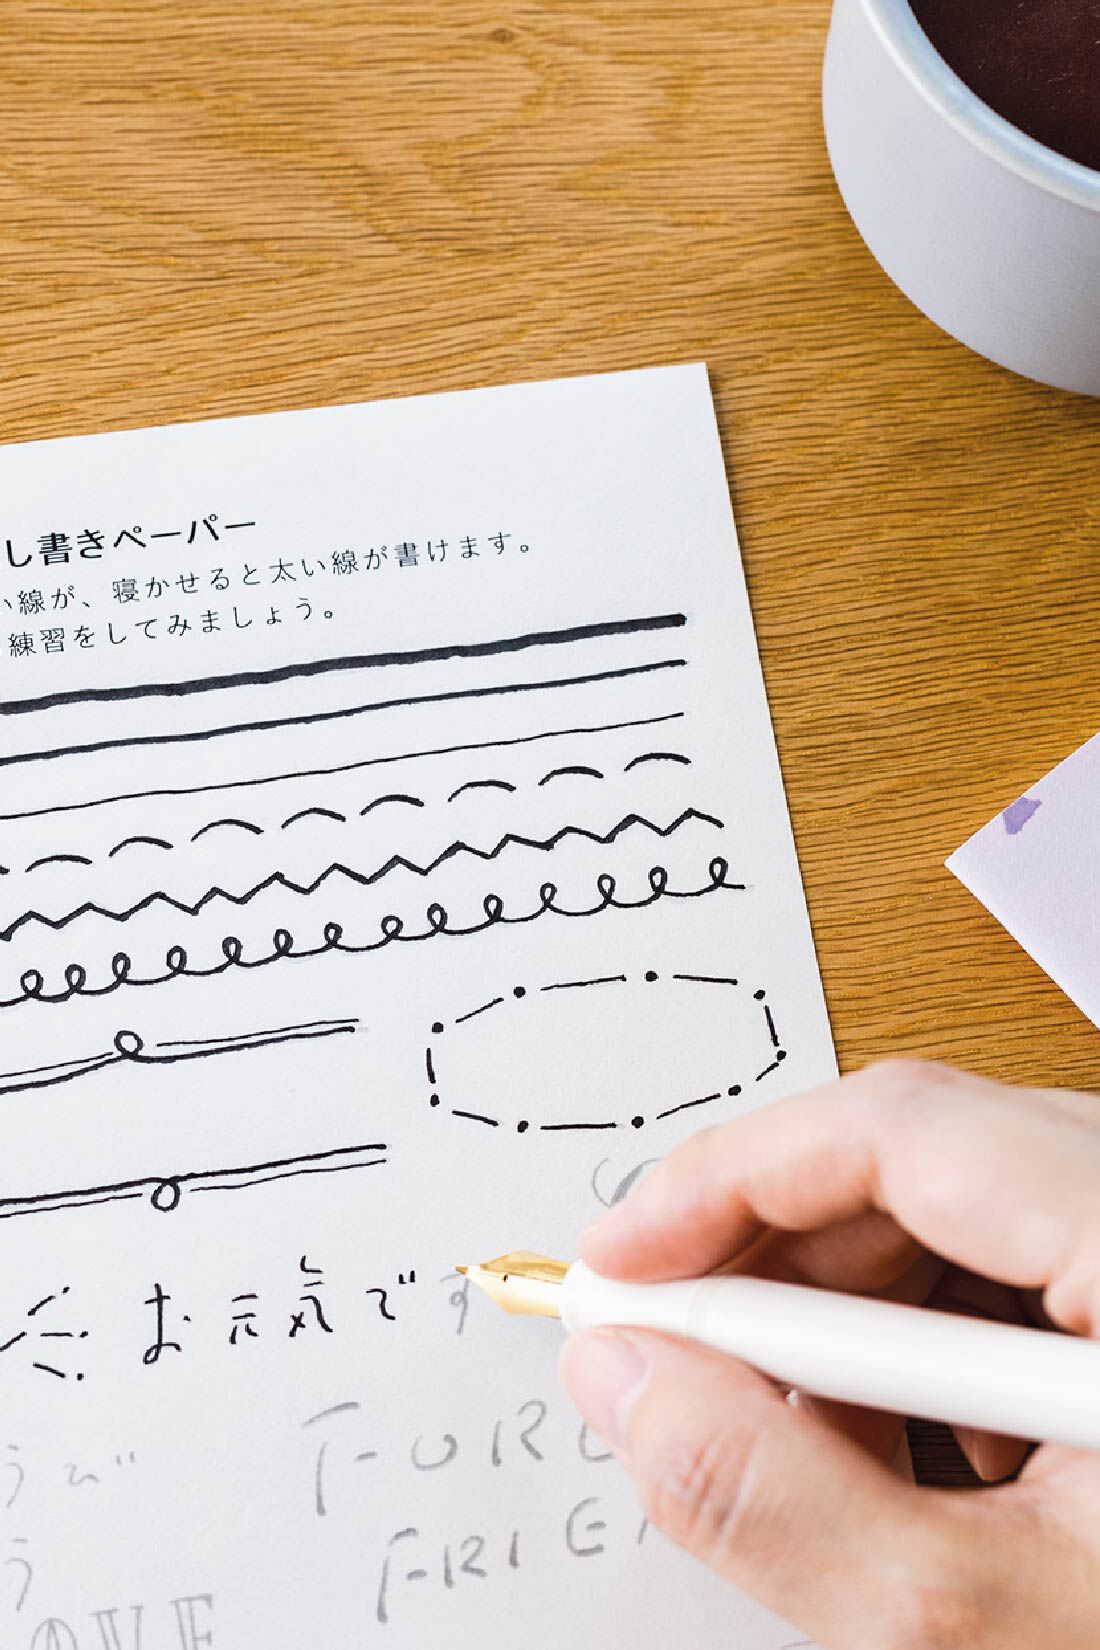 し書きペーパー
い線が、寝かせると太い線が書けます。
練習をしてみましょう。
お元気です
うび
FOR
う
FRIE
OVE